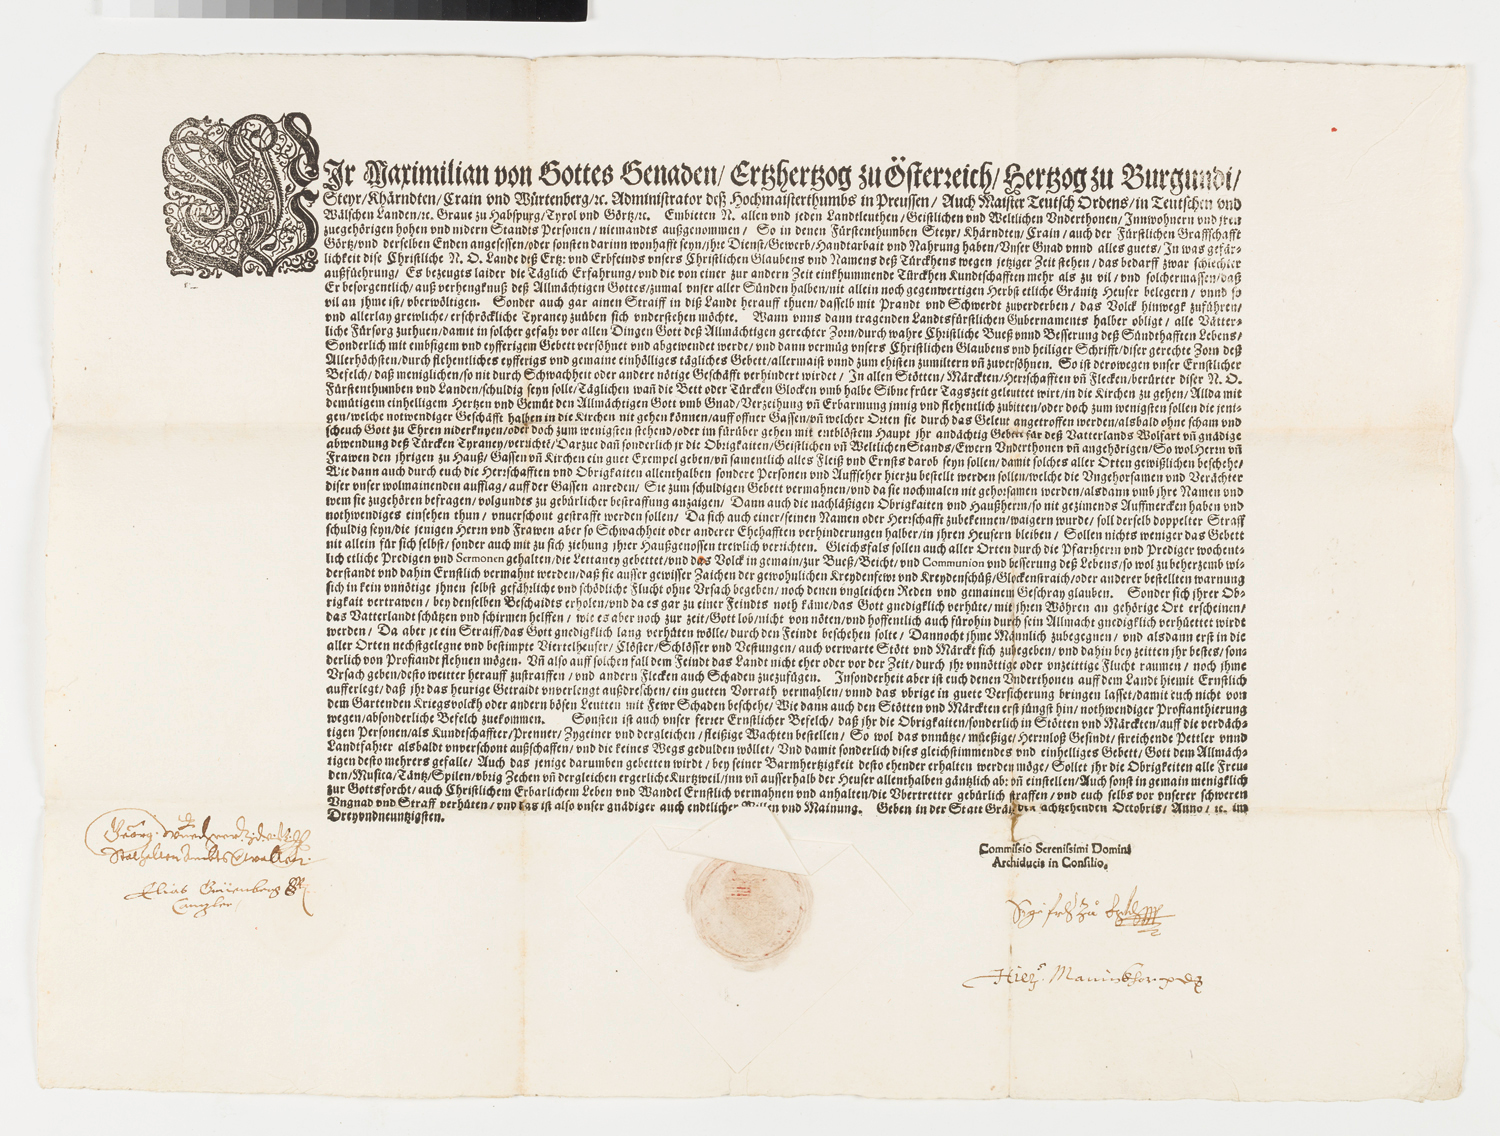 WIr Maximilian von Gottes Genaden/ Ertzhertzog zu Österreich/ Hertzog zu Burgundi/
Steyr/Khärndten/Crain vnd Würtenberg/ꝛc. Administrator deß Hochmaisterthumbs in Preussen/ Auch Maister Teutsch Ordens/in Teutschen vnd
Wälschen Landen/ꝛc. Graue zu Habspurg/Tyrol vnd Görtz/ꝛc. Embieten N. allen vnd jeden Landtleuthen/Geistlichen vnd Weltlichen Vnderthonen/Innwohnern vnd jren
zuegehörigen hohen vnd nidern Standts Personen/niemandts außgenommen/ So in denen Fürstenthumben Steyr/Khärndten/Crain/auch der Fürstlichen Graffschafft
Görtz/vnd derselben Enden angesessen/oder sonsten darinn wonhafft seyn/jhre Dienst/Gewerb/Handtarbait vnd Nahrung haben/Vnser Gnad vnnd alles guets/In was gefär-
lichkeit dise Christliche N. O. Lande diß Ertz: vnd Erbfeinds vnsers Christlichen Glaubens vnd Namens deß Türckhens wegen jetziger Zeit stehen/das bedarff zwar schlechter
außfüehrung/ Es bezeugts laider die Täglich Erfahrung/vnd die von einer zur andern Zeit einkhummende Türckhen Kundtschafften mehr als zu vil/vnd solchermassen/daß
Er besorgentlich/auß verhengknuß deß Allmächtigen Gottes/zumal vnser aller Sünden halben/nit allein noch gegenwertigen Herbst etliche Gränitz Heuser belegern/vnnd so
vil an jhme ist/vberwöltigen. Sonder auch gar ainen Straiff in diß Landt herauff thuen/dasselb mit Prandt vnd Schwerdt zuwerderben/das Volck hinwegk zuführen/
vnd allerlay grewliche/erschröckliche Tyraney zuüben sich vnderstehen möchte. Wann vnns dann tragenden Landtsfürstlichen Gubernaments halber obligt/alle Vätter-
liche Fürsorg zuthuen/damit in solcher gefahr vor allen Dingen Gott deß Allmächtigen gerechter Zorn/durch wahre Christliche Bueß vnnd Besserung deß Sündthafften Lebens/
Sonderlich mit embsigem vnd eyfferigem Gebett versöhnet vnd abgewendet werde/vnd dann vermüg vnsers Christlichen Glaubens vnd heiliger Schrifft/diser gerechte Zorn deß
Allerhöchsten/durch flehentliches eyfferigs vnd gemaine einhölliges tägliches Gebett/allermaist vnnd zum ehisten zumiltern vñ zuversöhnen. So ist derowegen vnser Ernstlicher
Befelch/daß meniglichen/so nit durch Schwachheit oder andere nötige Geschäfft verhindert wirdet/In allen Stötten/Märckten/Herschafften vñ Flecken/berürter diser N. O.
Fürstenthumben vnd Landen/schuldig seyn solle/Täglichen wañ die Bett oder Türcken Glocken vmb halbe Sibne früer Tagszeit geleuttet wirt/in die Kirchen zu gehen/Allda mit
demütigem einhelligem Hertzen vnd Gemüt den Allmächtigen Gott vmb Gnad/Verzeihung vñ Erbarmung jnnig vnd flehentlich zubitten/oder doch zum wenigsten sollen die jeni-
gen/welche notwendiger Geschäfft halben in die Kirchen nit gehen könnten/auff offner Gassen/vñ welcher Orten sie durch das Geleut angetroffen werden/alsbald ohne scham vnd
scheuch Gott zu Ehren niderknyen/oder doch zum wenigsten stehend/oder im fürüber gehen mit entblöstem Haupt jhr andächtig Gebett für deß Vatterlands Wolfart vñ gnädige
abwendung deß Türcken Tyraney/verrichte/Darzue dañ sonderlich jr die Obrigkaiten/Geistlichen vñ Weltlichen Stands/Ewern Vnderthonen vñ angehörigen/So wol Herrn vñ
Frawen den jhrigen zu Hauß/Gassen vñ Kirchen ein guet Exempel geben/vñ samentlich alles Fleiß vnd Ernsts darob seyn sollen/damit solches aller Orten gewißlichen beschehe/
Wie dann auch durch euch die Herschafften vnd Obrigkaiten allenthalben sondere Personen vnd Auffseher hierzu bestellt werden sollen/welche die Vngehorsamen vnd Verächter
diser vnser wolmainenden aufflag/auff der Gassen anreden/ Sie zum schuldigen Gebett vermahnen/vnd da sie nochmalen nit gehorsamen werden/alsdann vmb jhre Namen vnd
wem sie zugehören befragen/volgundts zu gebürlicher bestraffung anzaigen/ Dann auch die nachläßigen Obrigkaiten vnd Haußherrn/so nit gezimends Auffmercken haben vnd
nothwendiges einsehen thun/vnuerschont gestrafft werden sollen/ Da sich auch einer/seinen Namen oder Herrschafft zubekennen/waigern wurde/soll derselb doppelter Straff
schuldig seyn/die jenigen Herrn vnd Frawen aber so Schwachheit oder anderer Ehehafften verhinderungen halber/in jhren Heusern bleiben/ Sollen nichts weniger das Gebett
nit allein für sich selbst/sonder auch mit zu sich ziehung jhrer Haußgenossen trewlich verrichten. Gleichsfals sollen auch aller Orten durch die Pfarrherrn vnd Prediger wochent-
lich etliche Predigen vnd Sermonen gehalten/die Lettaney gebettet/vnd das Volck in gemain/zur Bueß/Beicht/vnd Communion vnd besserung deß Lebens/so wol zu beherzemb wi-
derstandt vnd dahin Ernstlich vermahnt werden/daß sie ausser gewisser Zaichen der gewohnlichen Kreydenfewr vnd Kreydenschüß/Glockenstraich/oder anderer bestellten warnung
sich in kein vnnötige jhnen selbst gefährliche vnd schödliche Flucht ohne Vrsach begeben/noch denen vngleichen Reden vnd gemainem Geschray glauben. Sonder sich jhrer Ob-
rigkait vertrawen/bey denselben Beschaidts erholen/vnd da es gar zu einer Feindts noth käme/das Gott gnedigklich verhüte/mit jhren Wöhren an gehörige Ort erscheinen/
das Vatterlandt schützen vnd schirmen helffen/ wie es aber noch zur zeit/Gott lob/nicht von nöten/vnd hoffentlich auch fürohin durch sein Allmacht gnedigklich verhüettet wirdt
werden/ Da aber je ein Straiff/das Gott gnedigklich lang verhüten wölle/durch den Feindt beschehen solte/ Dannocht jhme Männlich zubegegnen/vnd alsdann erst in die
aller Orten nechstgelegne vnd bestimpte Viertelheuser/Clöster/Schlösser vnd Vestungen/auch verwarte Stött vnd Märckt sich zubegeben/vnd dahin bey zeitten jhr bestes/son-
derlich von Profiandt flehnen mögen. Vñ also auff solchen fall dem Feindt das Landt nicht eher oder vor der Zeit/durch jhr vnnöttige oder vnzeittige Flucht raumen/noch jhme
Vrsach geben/desto weitter herauff zustraiffen/vnd andern Flecken auch Schaden zuezufügen. Insonderheit aber ist euch denen Vnderthonen auff dem Landt hiemit Ernstlich
aufferlegt/daß jhr das heurige Getraidt vnverlengt außdreschen/ein gueten Vorrath vermahlen/vnnd das vbrige in guete Versicherung bringen lasset/damit euch nicht von
dem Gartenden Kriegsvolckh oder andern bösen Leutten mit Fewr Schaden beschehe/Wie dann auch den Stötten vnd Märckten erst jüngst hin/nothwendiger Profianthierung
wegen/absonderliche Befelch zuekommen. Sonsten ist auch vnser ferrer Ernstlicher Befelch/daß jhr die Obrigkaiten/sonderlich in Stötten vnd Märckten/auff die verdäch-
tigen Personen/als Kundtschaffter/Prenner/Zygeiner vnd dergleichen/fleißige Wachten bestellen/ So wol das vnnütze/müeßige/Herrnloß Gesindt/streichende Pettler vnnd
Landtfahrer alsbaldt vnverschont außschaffen/vnd die keines Wegs gedulden wöllet/Vnd damit sonderlich dises gleichstimmendes vnd einhelliges Gebett/Gott dem Allmäch-
tigen desto mehrers gefalle/Auch das jenige darumben gebetten wirdt/bey seiner Barmhertzigkeit desto ehender erhalten werden möge/Sollet jhr die Obrigkeiten alle Freu-
den/Musica/Täntz/Spilen/vbrig Zechen vñ dergleichen ergerliche Kurtzweil/inn vñ ausserhalb der Heuser allenthalben gäntzlich ab: vñ einstellen/Auch sonst in gemain menigklich
zur Gottsforcht/auch Christlichem Erbarlichem Leben vnd Wandel Ernstlich vermahnen vnd anhalten/die Vbertretter gebürlich straffen/vnd euch selbs vor vnserer schweren
Vngnad vnd Straff verhüten/vnd das ist also vnser gnädiger auch endtlicher Willen vnd Mainung. Geben in der Statt Grätz den achtzehenden Octobris/Anno/ꝛc. im
Dreyvndneuntzigsten.
Commissio Serenissimi Domini
Archiducis in Consilio.
Georg
Stathalter Ambts Verwalter
Elias Grüenberg
Cantzler
Sigfridt zu
Hier. Manickhor